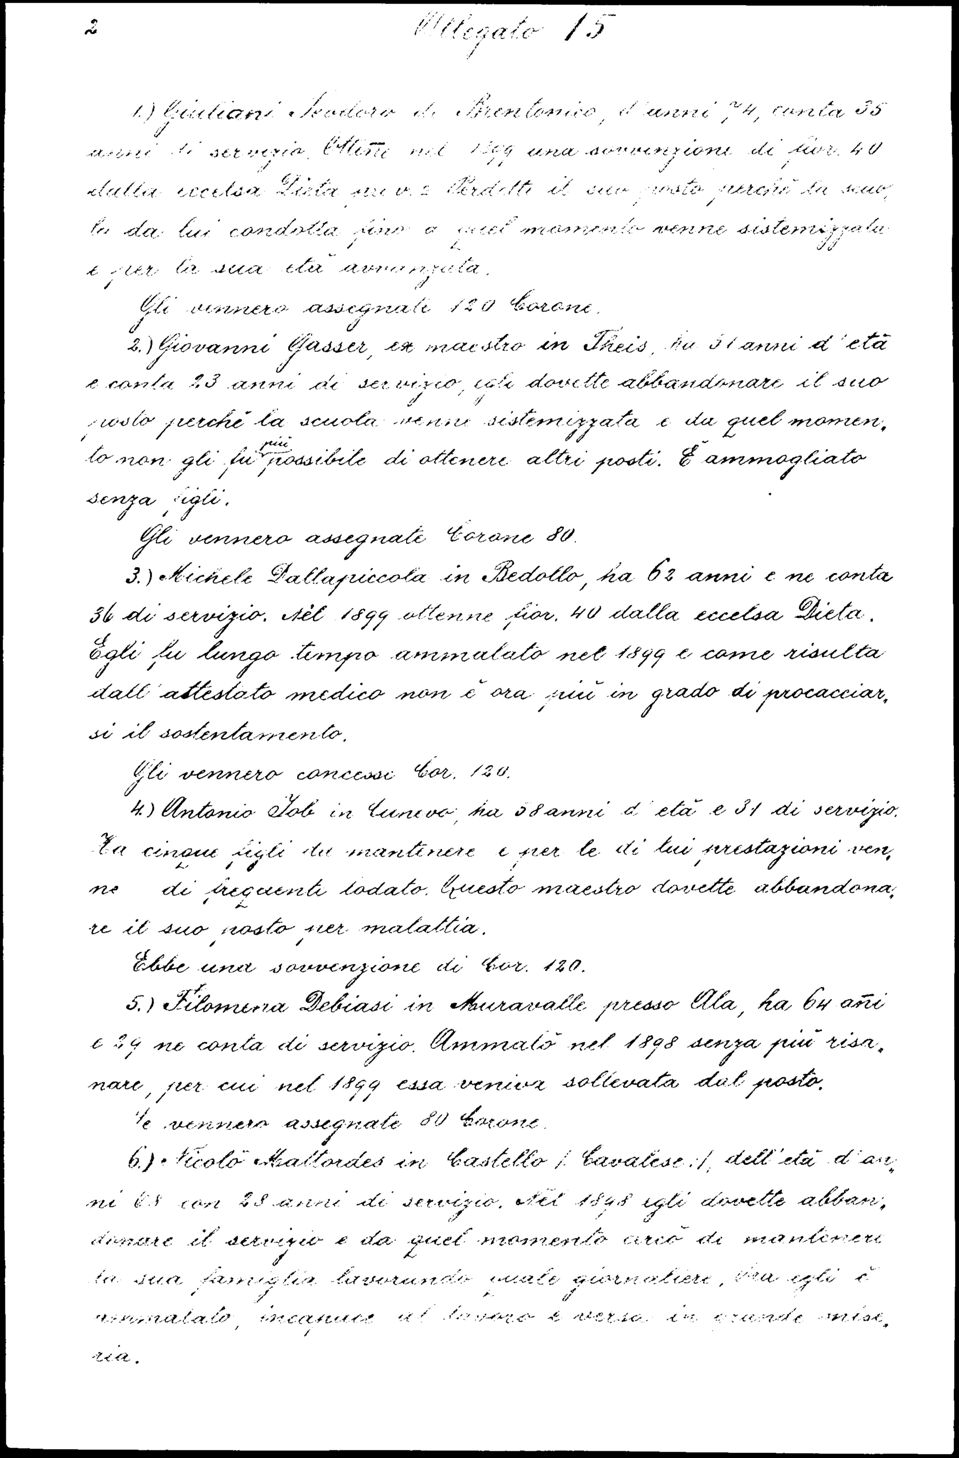 2 Allegato 15
1.) Giuliani Teodoro di Brentonico, d'anni 74, conta 35
anni di servizio. Ottenñe nel 1899 una sovvenzione di fior. 40
dalla eccelsa Dieta prov. Perdette il suo posto perchè la scuo,
la da lui condotta fino a quel momento venne sistemizzata
e per la sua età avvanzata.
Gli vennero assegnate 120 Corone.
2.) Giovanni Gasser, ex maestro in Theis, ha 51 anni d'età
e conta 23 anni di servizio, egli dovette abbandonare il suo
posto perchè la scuola venne sistemizzata e da quel momen,
to non gli fu più possibile di ottenere altri posti. È ammogliato
senza figli.
Gli vennero assegnate Corone 80.
3.) Michele Dallapiccola in Bedollo, ha 62 anni e ne conta
36 di servizio. Nel 1899 ottenne fior. 40 dalla eccelsa Dieta.
Egli fu lungo tempo ammalato nel 1899 e come risulta
dall'attestato medico non è ora più in grado di procacciar,
si il sostentamento.
Gli vennero concesse Cor. 120.
4.) Antonio Job in Cunevo, ha 58 anni d'età e 31 di servizio.
Ha cinque figli da mantenere e per le di lui prestazioni ven,
ne di frequente lodato. Questo maestro dovette abbandona,
re il suo posto per malattia.
Ebbe una sovvenzione di Cor. 120.
5.) Filomena Debiasi in Muravalle presso Ala, ha 64 añi
e 29 ne conta di servizio. Ammalò nel 1898 senza più risa,
nare, per cui nel 1899 essa veniva sollevata dal posto.
Le vennero assegnate 80 Corone.
6.) Nicolò Mattordes in Castello /: Cavalese :/, dell'età d'an,
ni 68 con 28 anni di servizio. Nel 1898 egli dovette abban,
donare il servizio e da quel momento cercò di mantenere
la sua famiglia lavorando quale giornaliere, Ora egli è
ammalato, incapace al lavoro e versa in grande mise,
ria.